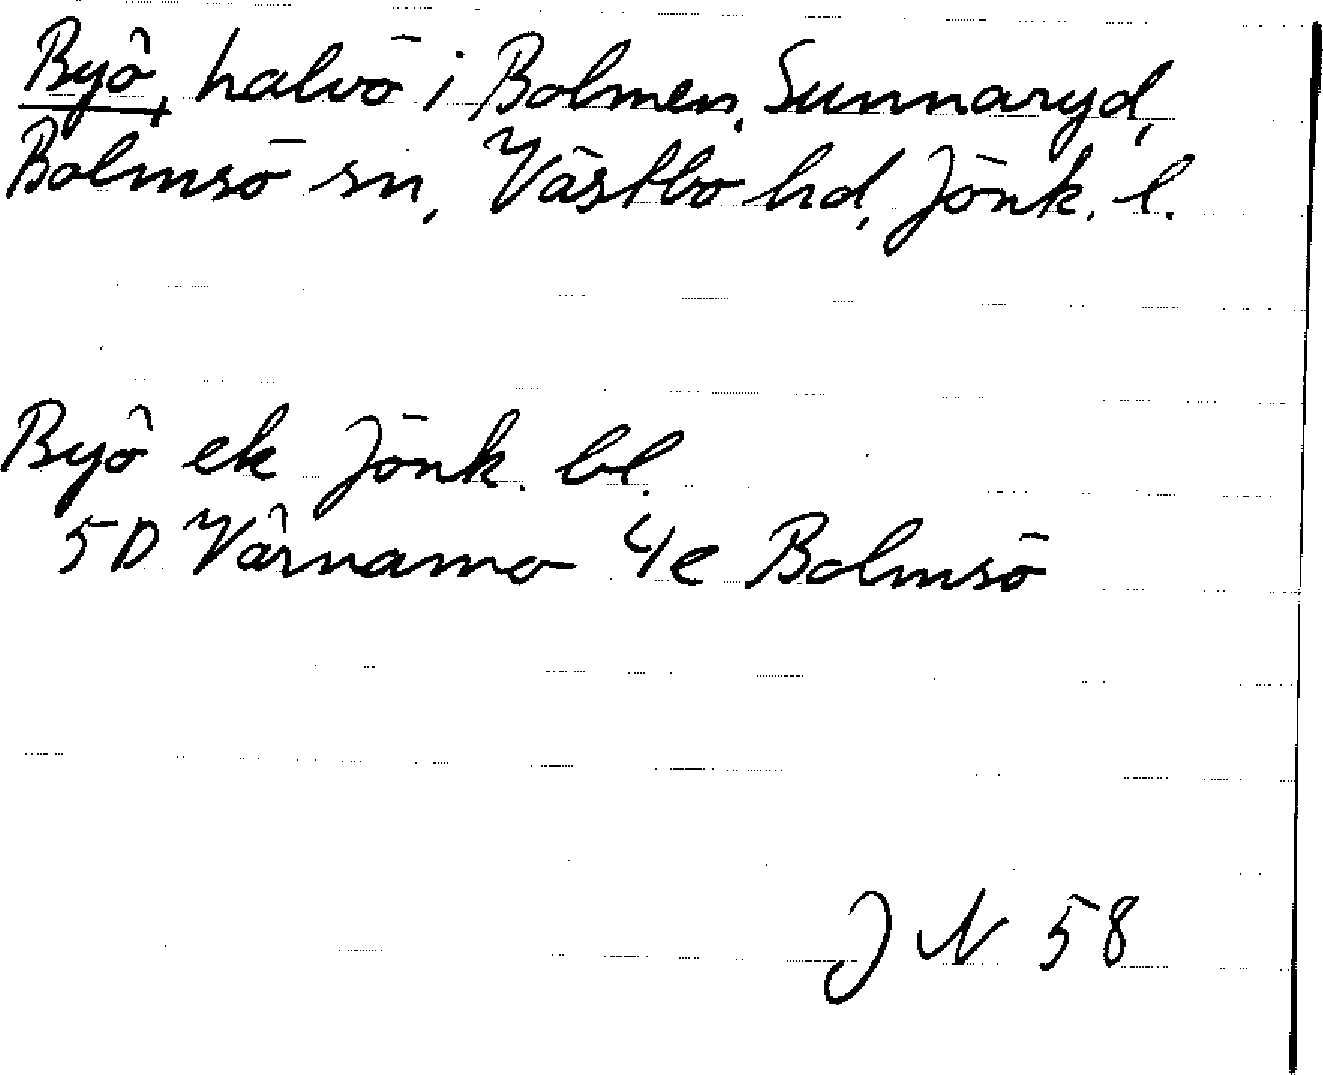 Byö, halvö i Bolmen, Sunnaryd,
Bolmsö sn, Västbo hd, Jönk. l.
Byö ek Jönk. bl.
5D Värnamo 4e Bolmsö
JN 58